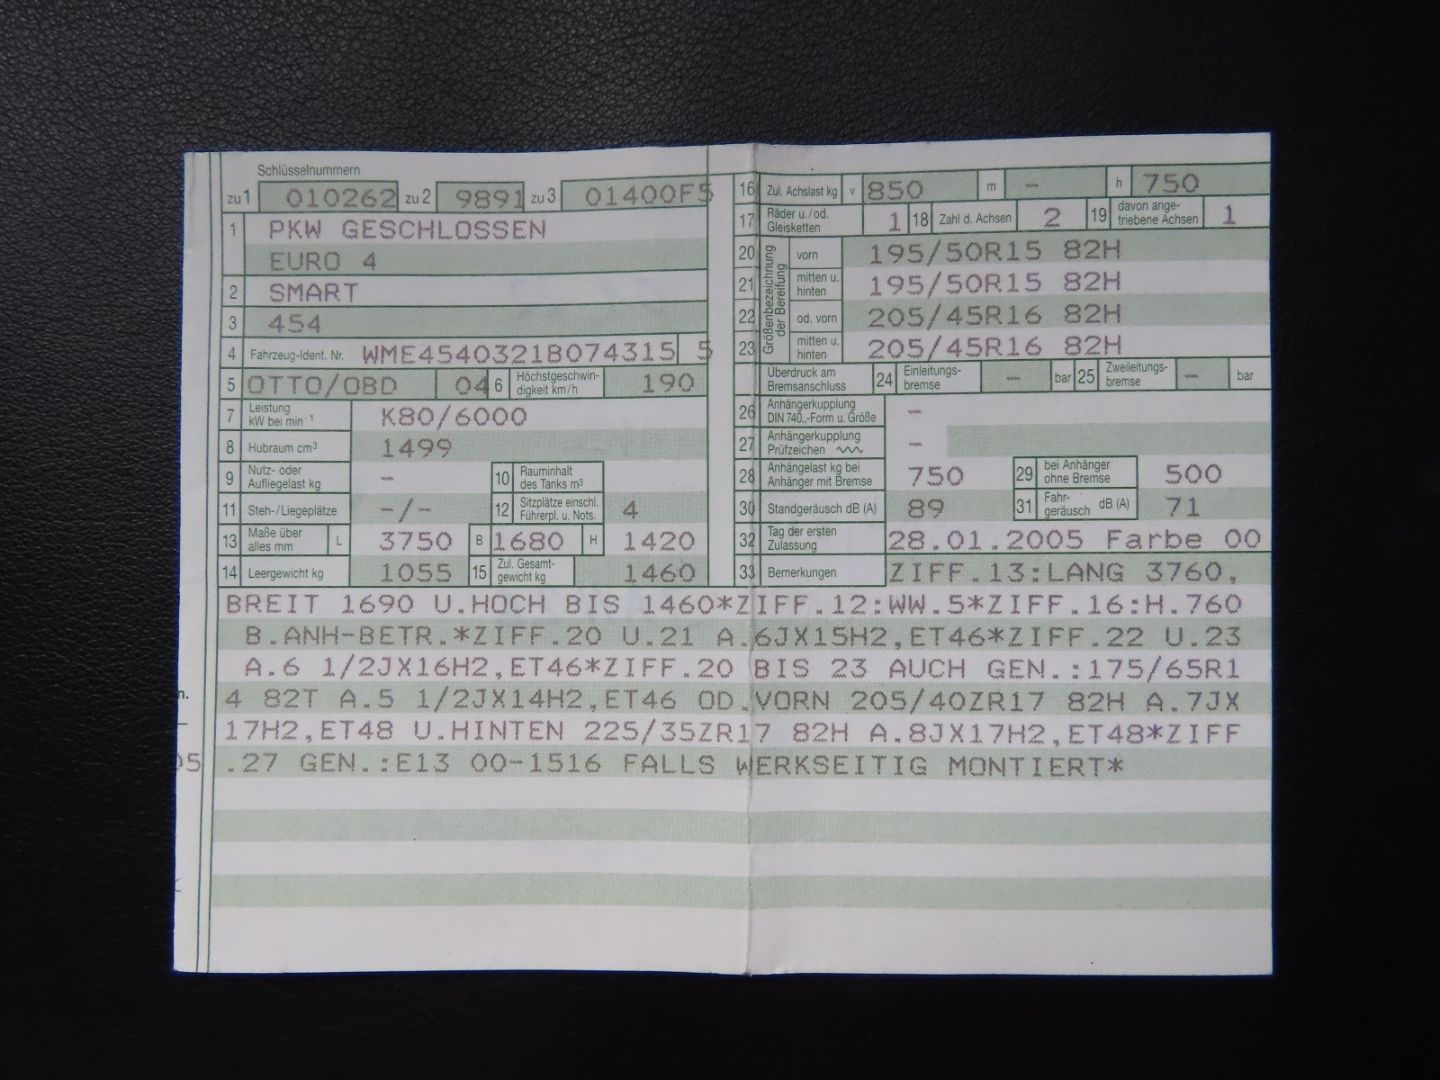 Schlüsselnummern
zu 1 010262 zu 2 9891 zu 3 01400F5
1 PKW GESCHLOSSEN
EURO 4
2 SMART
3 454
4 Fahrzeug-Ident. Nr. WME4540321B074315 5
5 OTTO/OBD 04 6 Höchstgeschwin-digkeit km/h 190
7 Leistung kW bei min⁻¹ K80/6000
8 Hubraum cm³ 1499
9 Nutz- oder Aufliegelast kg – 10 Rauminhalt des Tanks m³
11 Steh-/Liegeplätze -/- 12 Sitzplätze einschl. Führerpl. u. Nots. 4
13 Maße über alles mm L 3750 B 1680 H 1420
14 Leergewicht kg 1055 15 Zul. Gesamt-gewicht kg 1460
16 Zul. Achslast kg v 850 m – h 750
17 Räder u./od. Gleisketten 1 18 Zahl d. Achsen 2 19 davon ange-triebene Achsen 1
Größenbezeichnung der Bereifung
20 vorn 195/50R15 82H
21 mitten u. hinten 195/50R15 82H
22 od. vorn 205/45R16 82H
23 mitten u. hinten 205/45R16 82H
Überdruck am Bremsanschluss 24 Einleitungs-bremse – bar 25 Zweileitungs-bremse – bar
26 Anhängerkupplung DIN 740.,-Form u. Größe –
27 Anhängerkupplung Prüfzeichen –
28 Anhängelast kg bei Anhänger mit Bremse 750 29 bei Anhänger ohne Bremse 500
30 Standgeräusch dB (A) 89 31 Fahr-geräusch dB (A) 71
32 Tag der ersten Zulassung 28.01.2005 Farbe 00
33 Bemerkungen ZIFF.13:LANG 3760,
BREIT 1690 U.HOCH BIS 1460*ZIFF.12:WW.5*ZIFF.16:H.760
B.ANH-BETR.*ZIFF.20 U.21 A.6JX15H2,ET46*ZIFF.22 U.23
A.6 1/2JX16H2,ET46*ZIFF.20 BIS 23 AUCH GEN.:175/65R1
4 82T A.5 1/2JX14H2,ET46 OD.VORN 205/40ZR17 82H A.7JX
17H2,ET48 U.HINTEN 225/35ZR17 82H A.8JX17H2,ET48*ZIFF
.27 GEN.:E13 00-1516 FALLS WERKSEITIG MONTIERT*